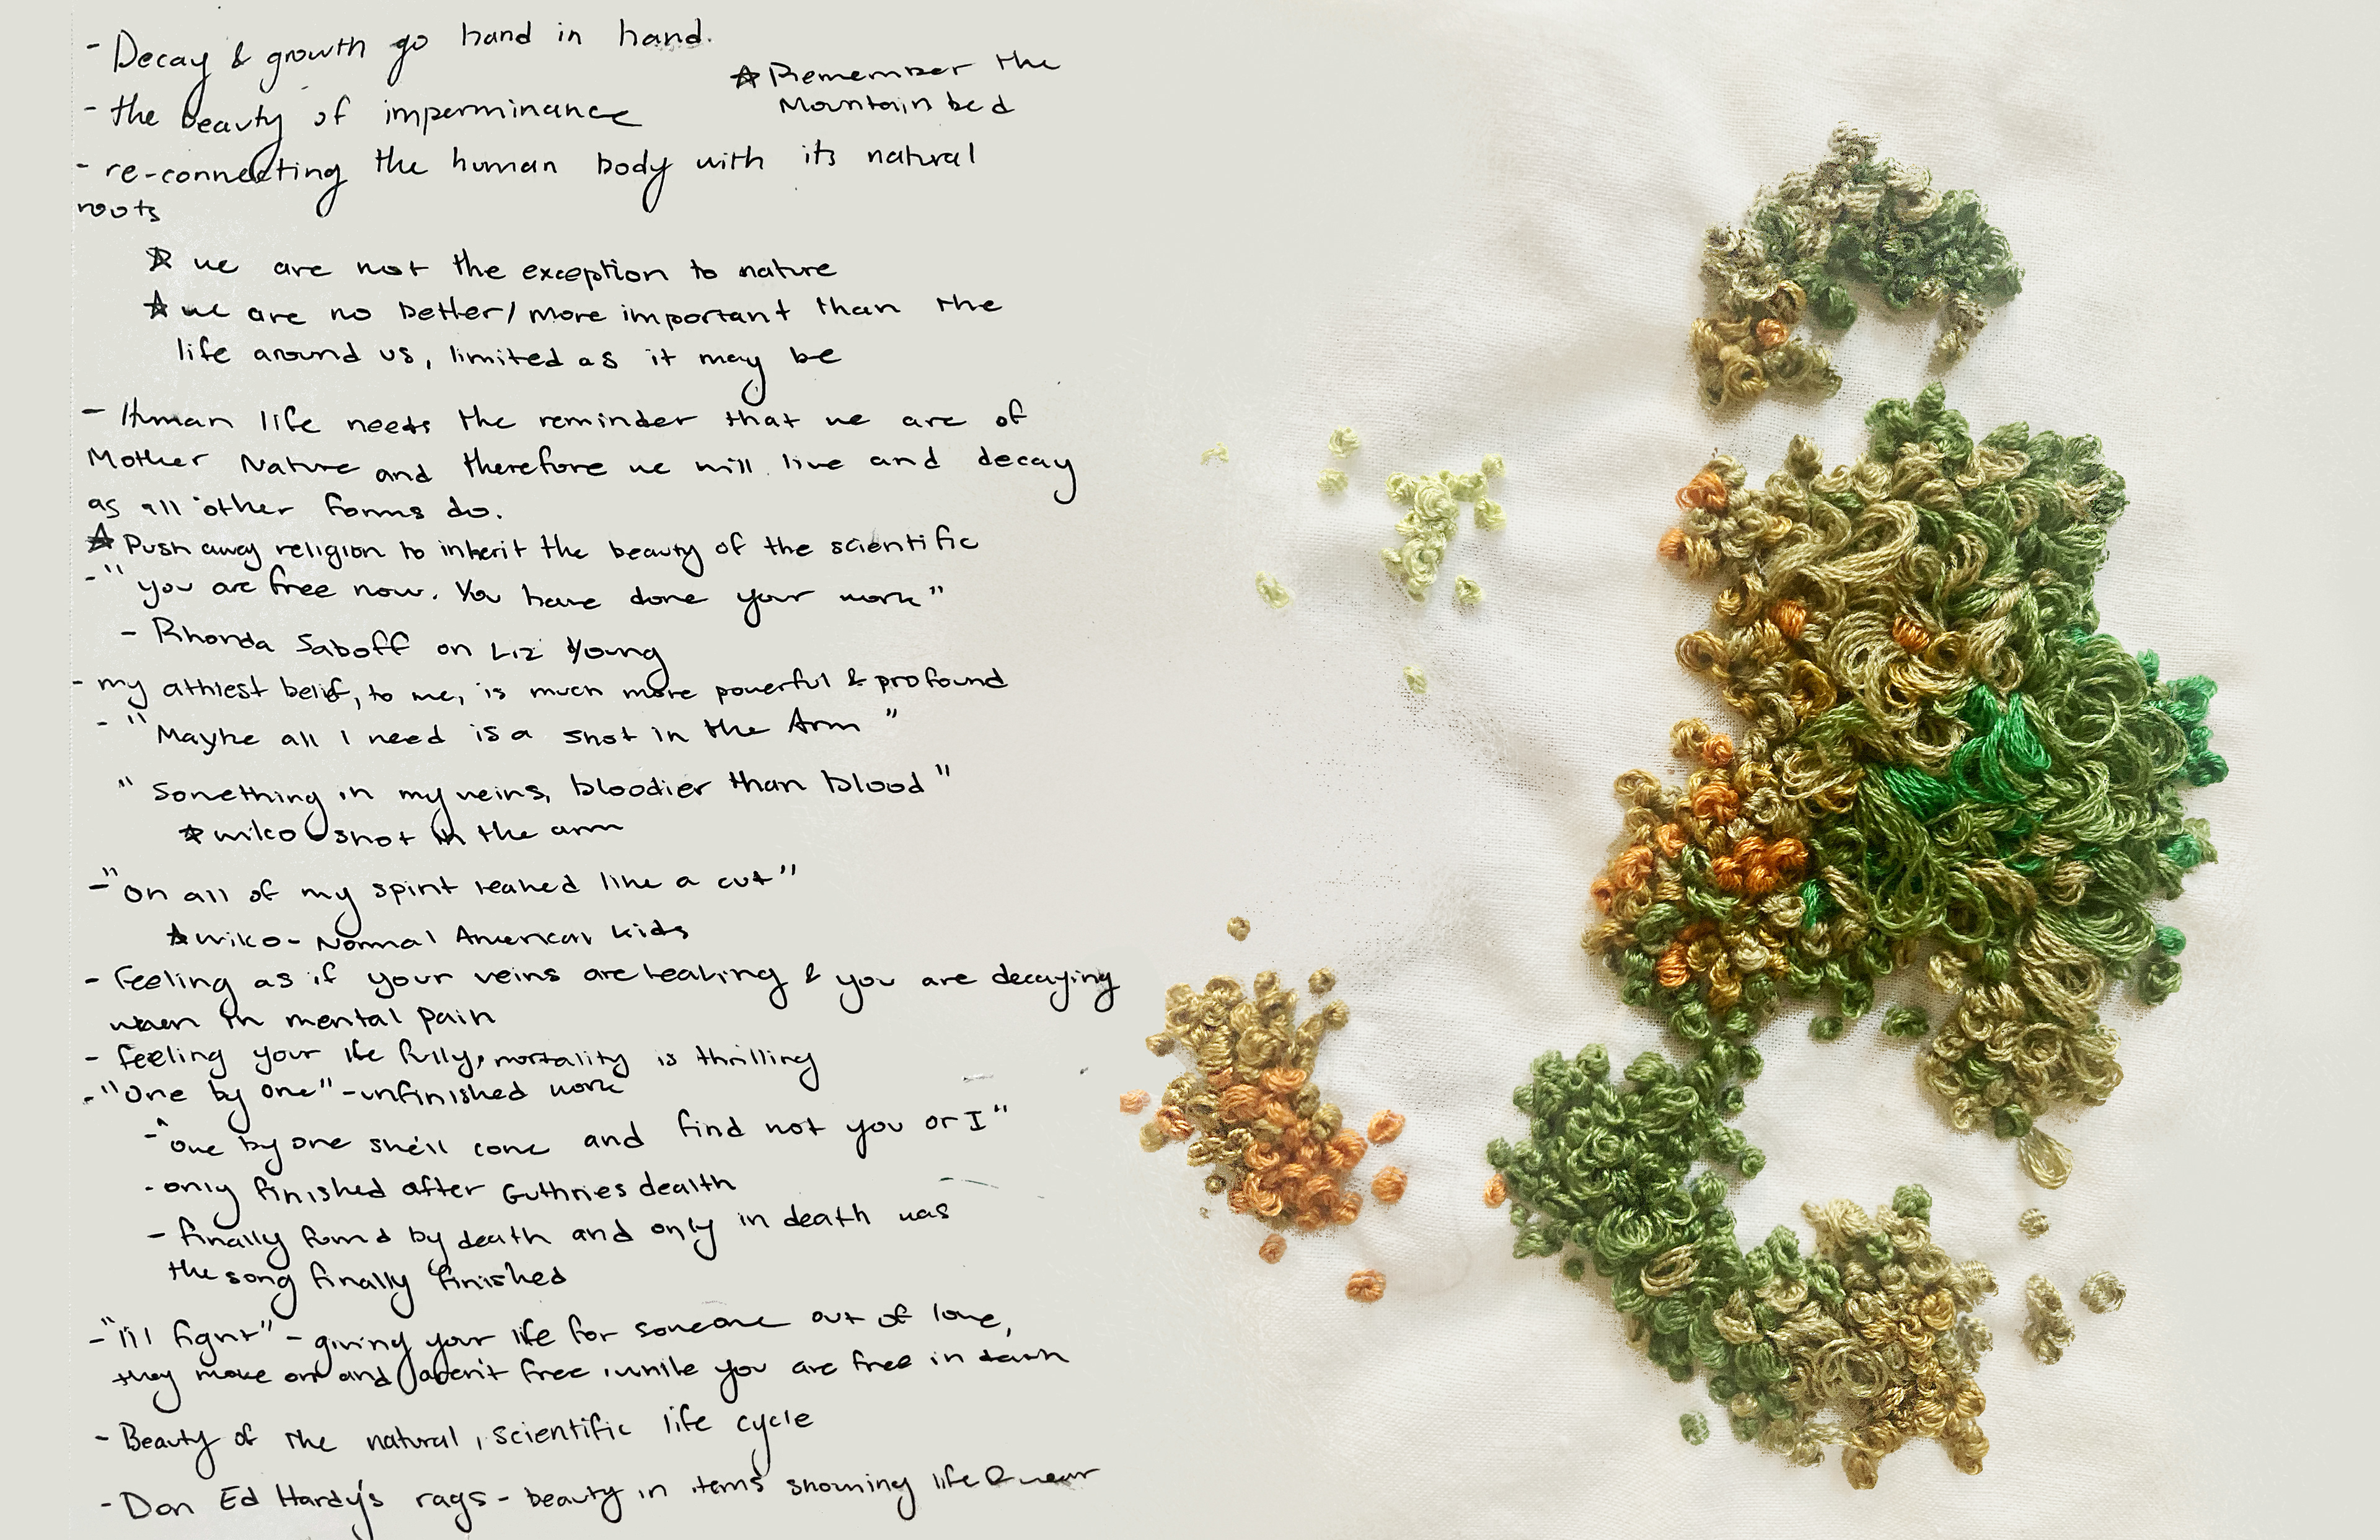 - Decay & growth go hand in hand.
☆ Remember the
Mountain bed
- the beauty of imperminance
- re-connecting the human body with its natural
roots
☆ we are not the exception to nature
☆ we are no better/more important than the
life around us, limited as it may be
- Human life needs the reminder that we are of
Mother Nature and therefore we will live and decay
as all other forms do.
☆ Push away religion to inherit the beauty of the scientific
- "you are free now. You have done your work"
- Rhonda Saboff on Liz Young
- my athiest belif, to me, is much more powerful & profound
- "Maybe all I need is a shot in the Arm"
"Something in my veins, bloodier than blood"
☆ wilco - shot in the arm
- "on all of my spirit leaked like a cut"
☆ wilco - Normal American kids
- feeling as if your veins are leaking & you are decaying
when in mental pain
- feeling your life fully, mortality is thrilling
- "One by one" - unfinished work
- "one by one she'll come and find not you or I"
- only finished after Guthries dealth
- finally found by death and only in death was
the song finally finished
- "I'll fight" - giving your life for someone out of love,
they move on and aren't free while you are free in death
- Beauty of the natural, scientific life cycle
- Don Ed Hardy's rags - beauty in items showing life & wear